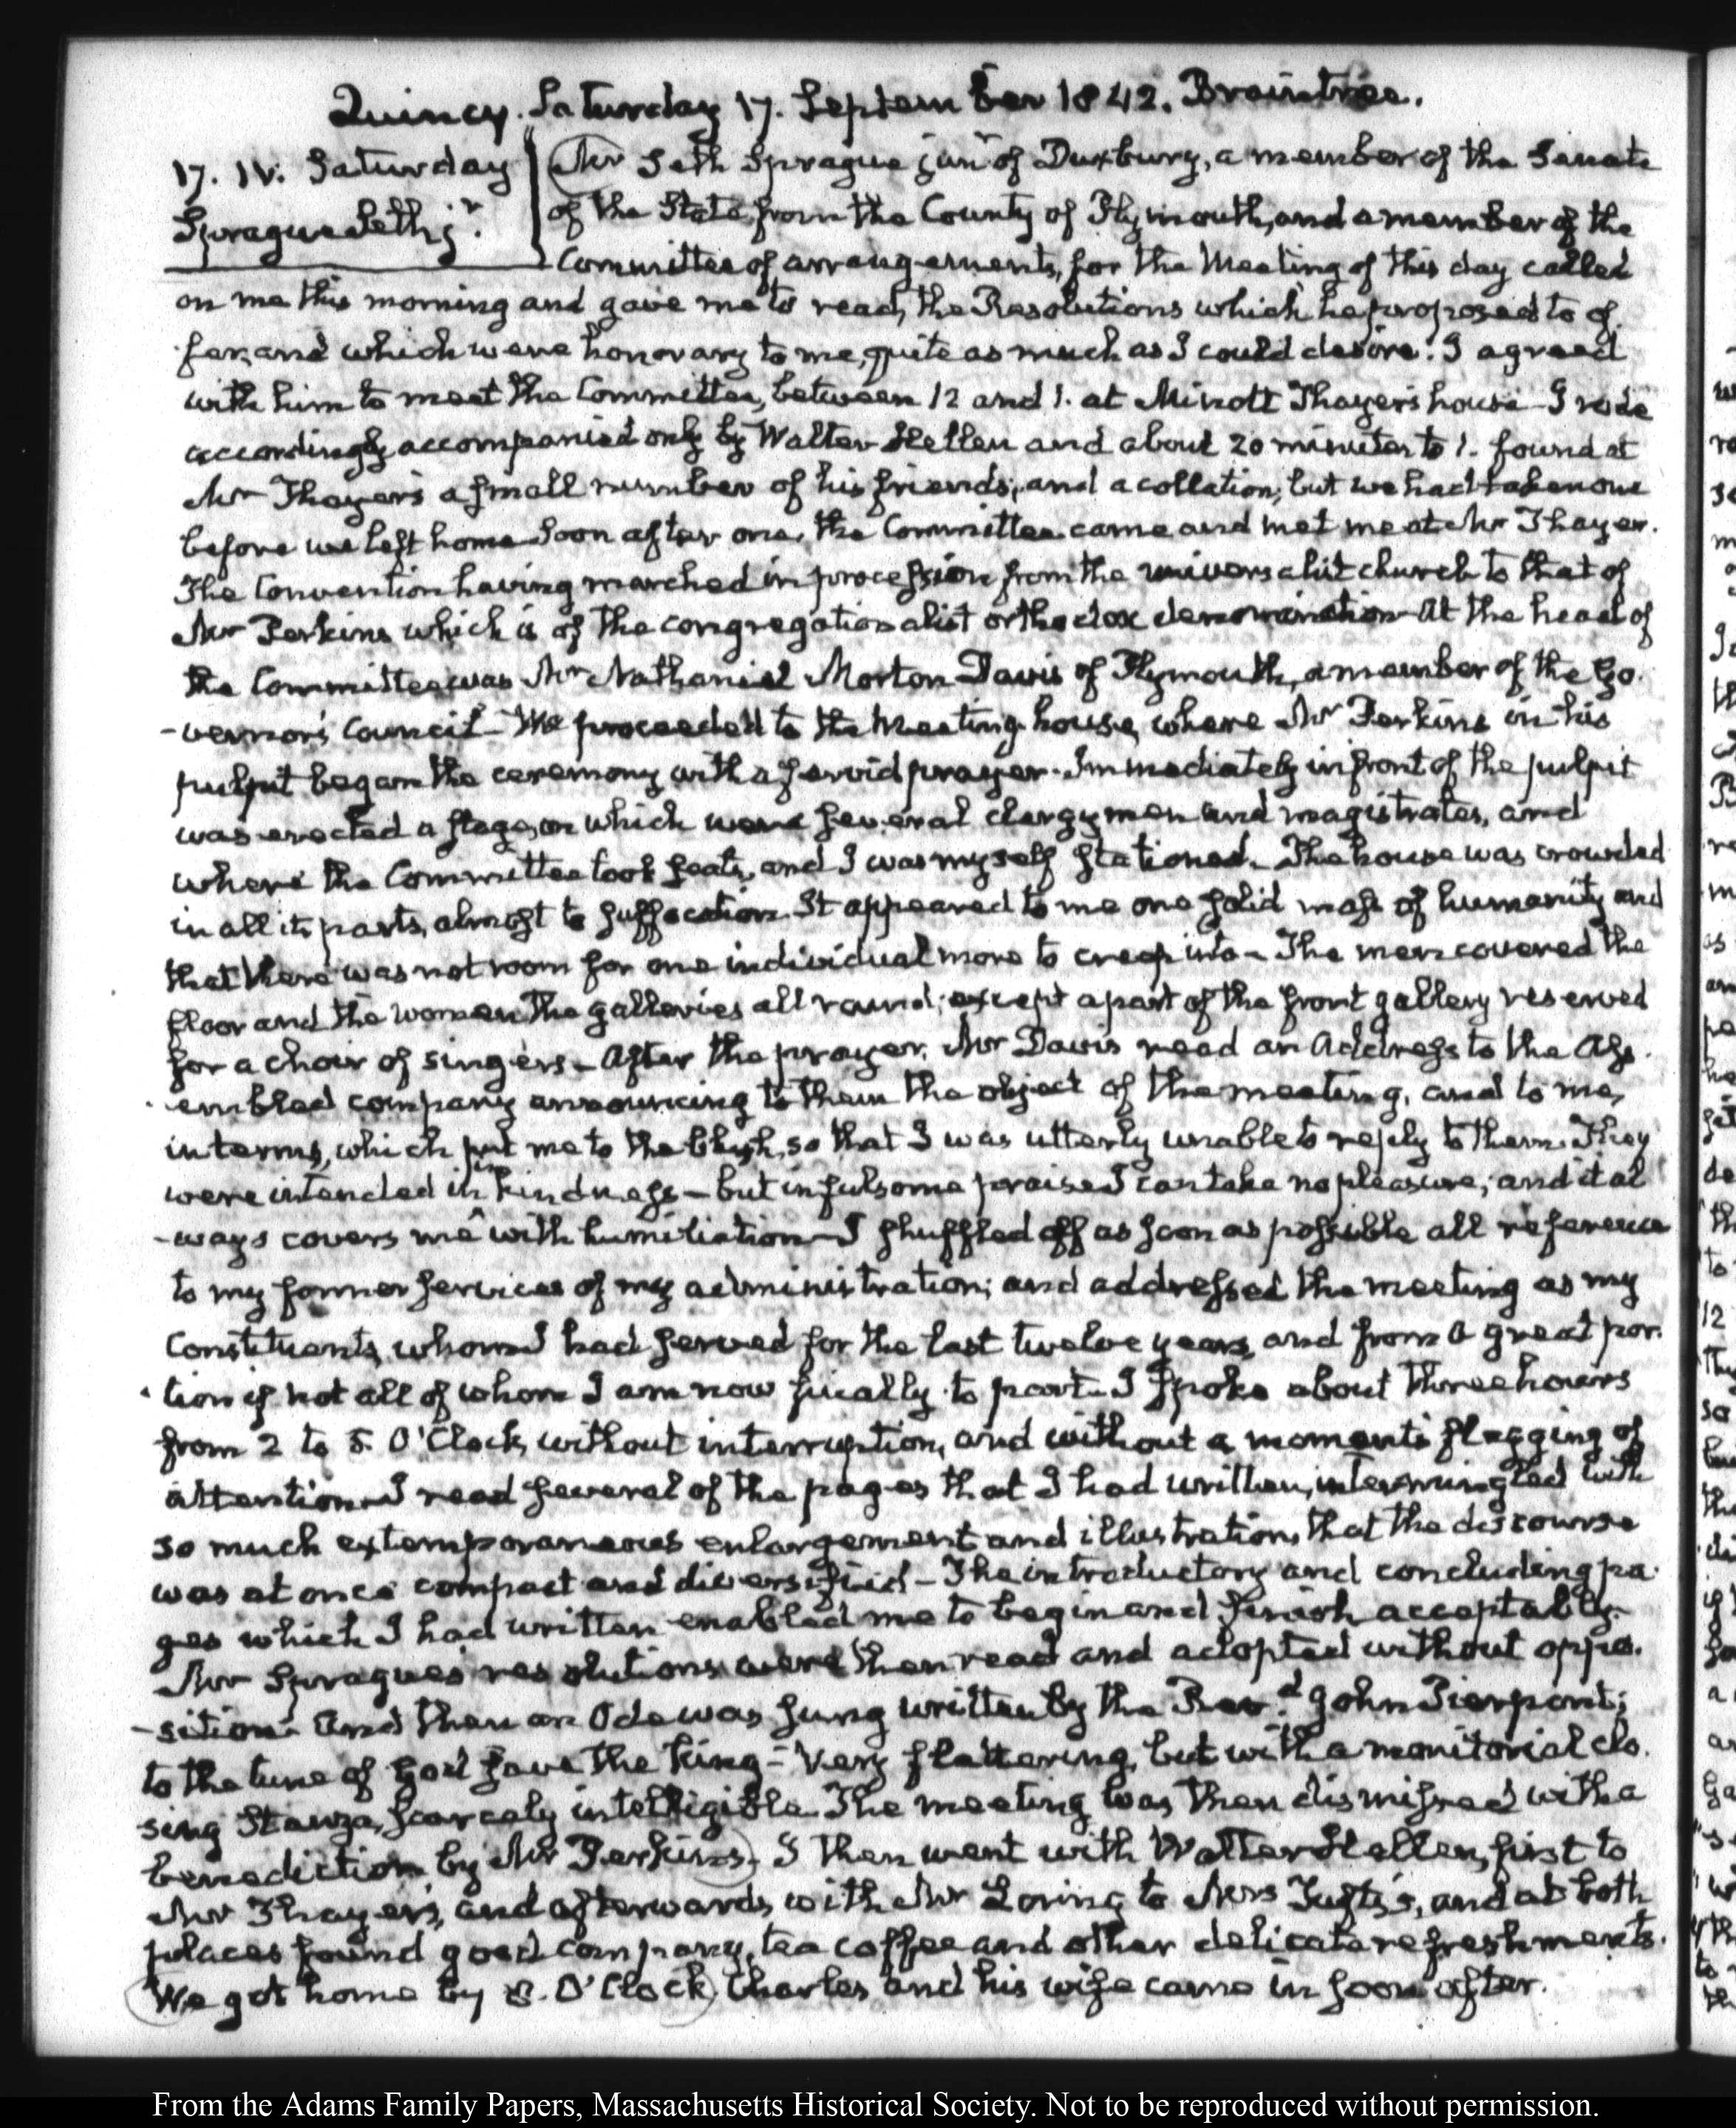 Quincy. Saturday 17. September 1842. Braintree.
17. IV. Saturday
Sprague Seth jr.
Mr Seth Sprague junr of Duxbury, a member of the Senate
of the State, from the County of Plymouth, and a member of the
Committee of arrangements, for the Meeting of this day called
on me this morning and gave me to read, the Resolutions which he proposed to of
fer, and which were honorary to me, quite as much as I could desire. I agreed
with him to meet the Committee, between 12 and 1. at Minott Thayer's house. I rode
accordingly accompanied only by Walter Hellen and about 20 minutes to 1. found at
Mr Thayer's a small number of his friends, and a collation, but we had taken one
before we left home. Soon after one, the Committee came and met me at Mr Thayer.
The Convention having marched in procession from the universalist church to that of
Mr Perkins which is of the congregationalist orthodox denomination. At the head of
the Committee was Mr Nathaniel Morton Davis of Plymouth, a member of the Go
-vernor's Council - We proceeded to the Meeting house, where Mr Perkins in his
pulpit began the ceremony with a fervid prayer. Immediately in front of the pulpit
was erected a stage, on which were several clergymen and magistrates, and
where the Committee took seats, and I was myself stationed. The house was crowded
in all its parts, almost to suffocation. It appeared to me one solid mass of humanity and
that there was not room for one individual more to creep into - The men covered the
floor and the women the galleries all round; except a part of the front gallery reserved
for a choir of singers - After the prayer, Mr Davis read an Address to the Ass
embled company announcing to them the object of the meeting, and to me,
in terms, which put me to the blush, so that I was utterly unable to reply to them. They
were intended in kindness - but in fulsome praise I can take no pleasure; and it al
-ways covers me with humiliation - I shuffled off as soon as possible all reference
to my former services of my administration; and addressed the meeting as my
Constituents, whom I had served for the last twelve years, and from a great por
tion if not all of whom I am now finally to part. I spoke about three hours
from 2 to 5. O'Clock, without interruption, and without a moment's flagging of
attention. I read several of the pages that I had written, intermingled with
so much extemporaneous enlargement and illustration, that the discourse
was at once compact and diversified - The introductory and concluding pa
ges which I had written enabled me to begin and finish acceptably.
Mr Sprague's resolutions were then read and adopted without oppo.
-sition - And then an Ode was sung written by the Revd. John Pierpont;
to the tune of God save the King - Very flattering, but with a monitorial clo
sing Stanza, scarcely intelligible. The meeting was then dismissed with a
benediction by Mr Perkins. I then went with Walter Hellen, first to
Mr Thayer's, and afterwards, with Mr Loring to Mrs Tufts's, and at both
places found good company, tea coffee and other delicate refreshments.
We got home by 8. O'Clock. Charles and his wife came in soon after.
From the Adams Family Papers, Massachusetts Historical Society. Not to be reproduced without permission.